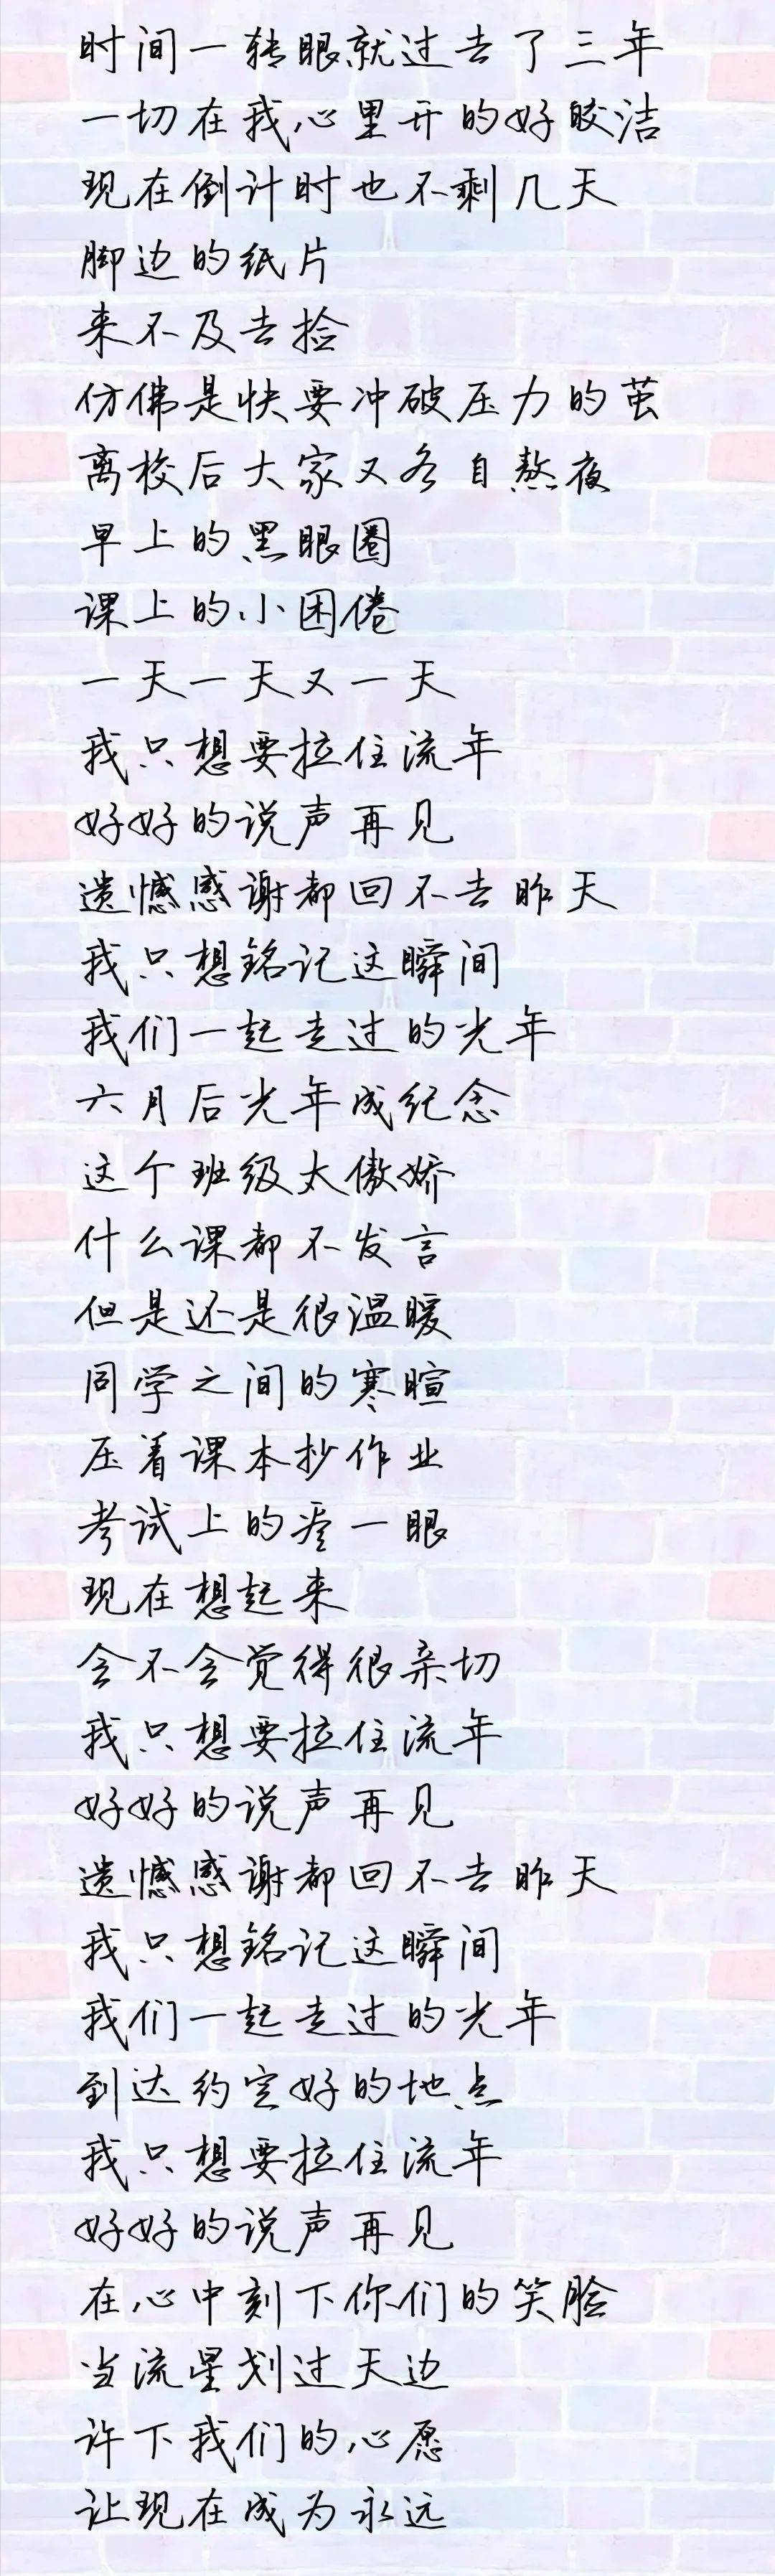 时间一转眼就过去了三年
一切在我心里开的好皎洁
现在倒计时也不剩几天
脚边的纸片
来不及去捡
仿佛是快要冲破压力的茧
离校后大家又各自熬夜
早上的黑眼圈
课上的小困倦
一天一天又一天
我只想要拉住流年
好好的说声再见
遗憾感谢都回不去昨天
我只想铭记这瞬间
我们一起走过的光年
六月后光年成纪念
这个班级太傲娇
什么课都不发言
但是还是很温暖
同学之间的寒暄
压着课本抄作业
考试上的歪一眼
现在想起来
会不会觉得很亲切
我只想要拉住流年
好好的说声再见
遗憾感谢都回不去昨天
我只想铭记这瞬间
我们一起走过的光年
到达约定好的地点
我只想要拉住流年
好好的说声再见
在心中刻下你们的笑脸
当流星划过天边
许下我们的心愿
让现在成为永远